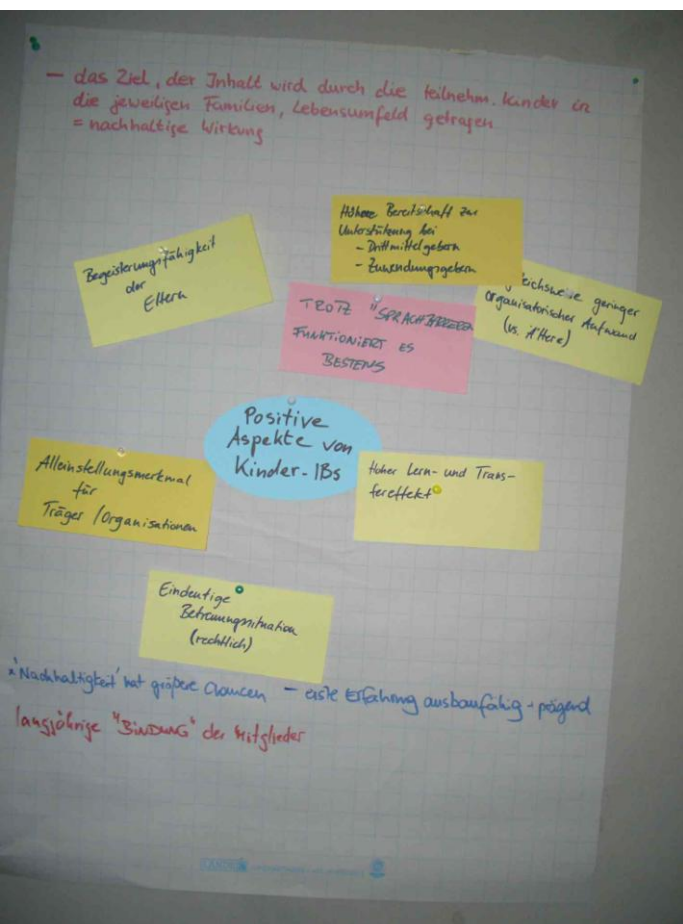 — das Ziel, der Inhalt wird durch die teilnehm. Kinder in
die jeweiligen Familien, Lebensumfeld getragen
= nachhaltige Wirkung
Höhere Bereitschaft zur
Unterstützung bei
- Drittmittelgebern
- Zuwendungsgebern
Begeisterungsfähigkeit
der
Eltern
gleichsweise geringer
organisatorischer Aufwand
(vs. Ältere)
TROTZ "SPRACHBARRIEREN
FUNKTIONIERT ES
BESTENS
Positive
Aspekte von
Kinder-IBs
Alleinstellungsmerkmal
für
Träger / Organisationen
Hoher Lern- und Trans-
fereffekt
Eindeutige
Betreuungssituation
(rechtlich)
'Nachhaltigkeit' hat größere Chancen — erste Erfahrung ausbaufähig + prägend
langjährige "BINDUNG" der Mitglieder